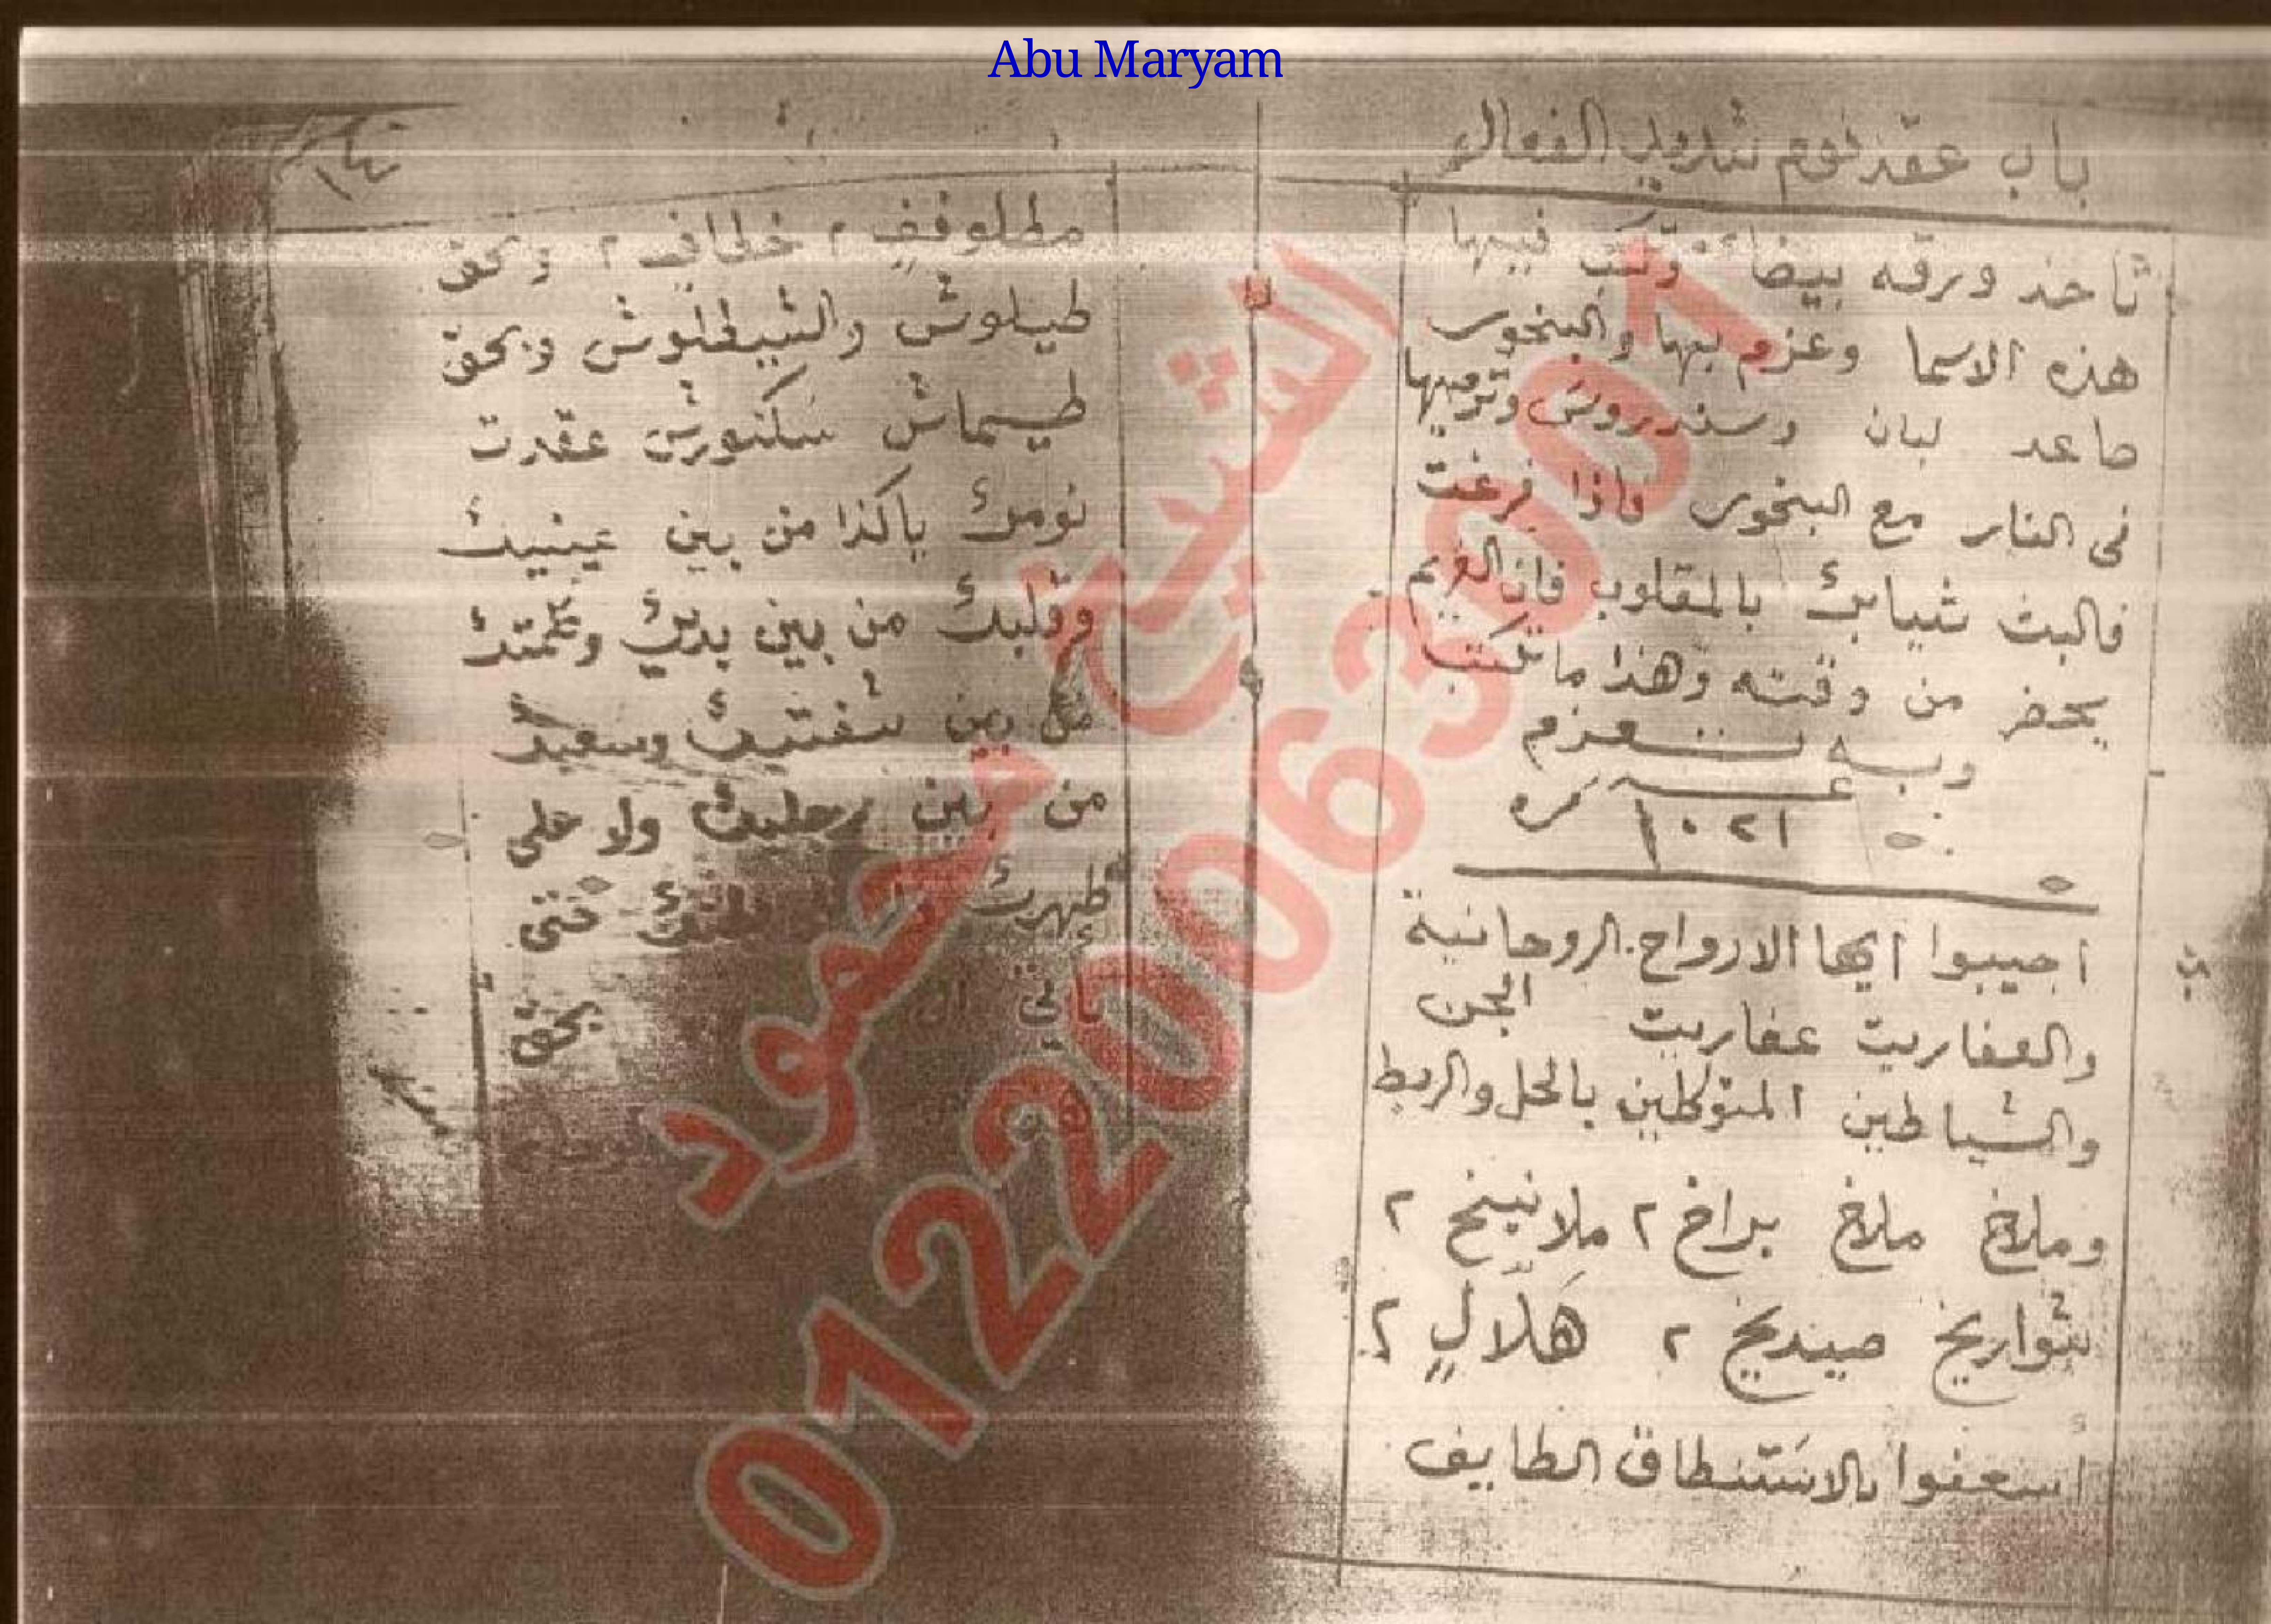 Abu Maryam
باب عقد نوم شديد الفعال
تاخذ ورقه بيضا وتكتب فيها
هذه الاسما وعزم بها والبخور
صاعد لبان وسندروس وترميها
فى النار مع البخور فاذا فرغت
فالبث ثيابك بالمقلوب فان الغريم
يحضر من وقته وهذا ما تكتب
وبه تعزم
١٠٢١ مره
اجيبوا ايها الارواح الروحانية
والعفاريت عفاريت الجن
والشياطين المتوكلين بالحل والربط
وملاخ ملاخ براخ ٢ ملانيخ ٢
شواريخ صيندیخ ٢ هلال ٢
اسعفوا بالاستنطاق الطايف
مطلوفف ٢ خطاف ٢ وبحق
طيلوش والشيطلوش وبحق
طيماش سكنورش عقدت
نومك ياكذا من بين عينيك
وقلبك من بين يديك وكلمتك
من بين شفتيك وسعيك
من بين رجليك ولا على
ظهرك بطنك حتى
تاتي بحق
الشيخ محمود
01220063001